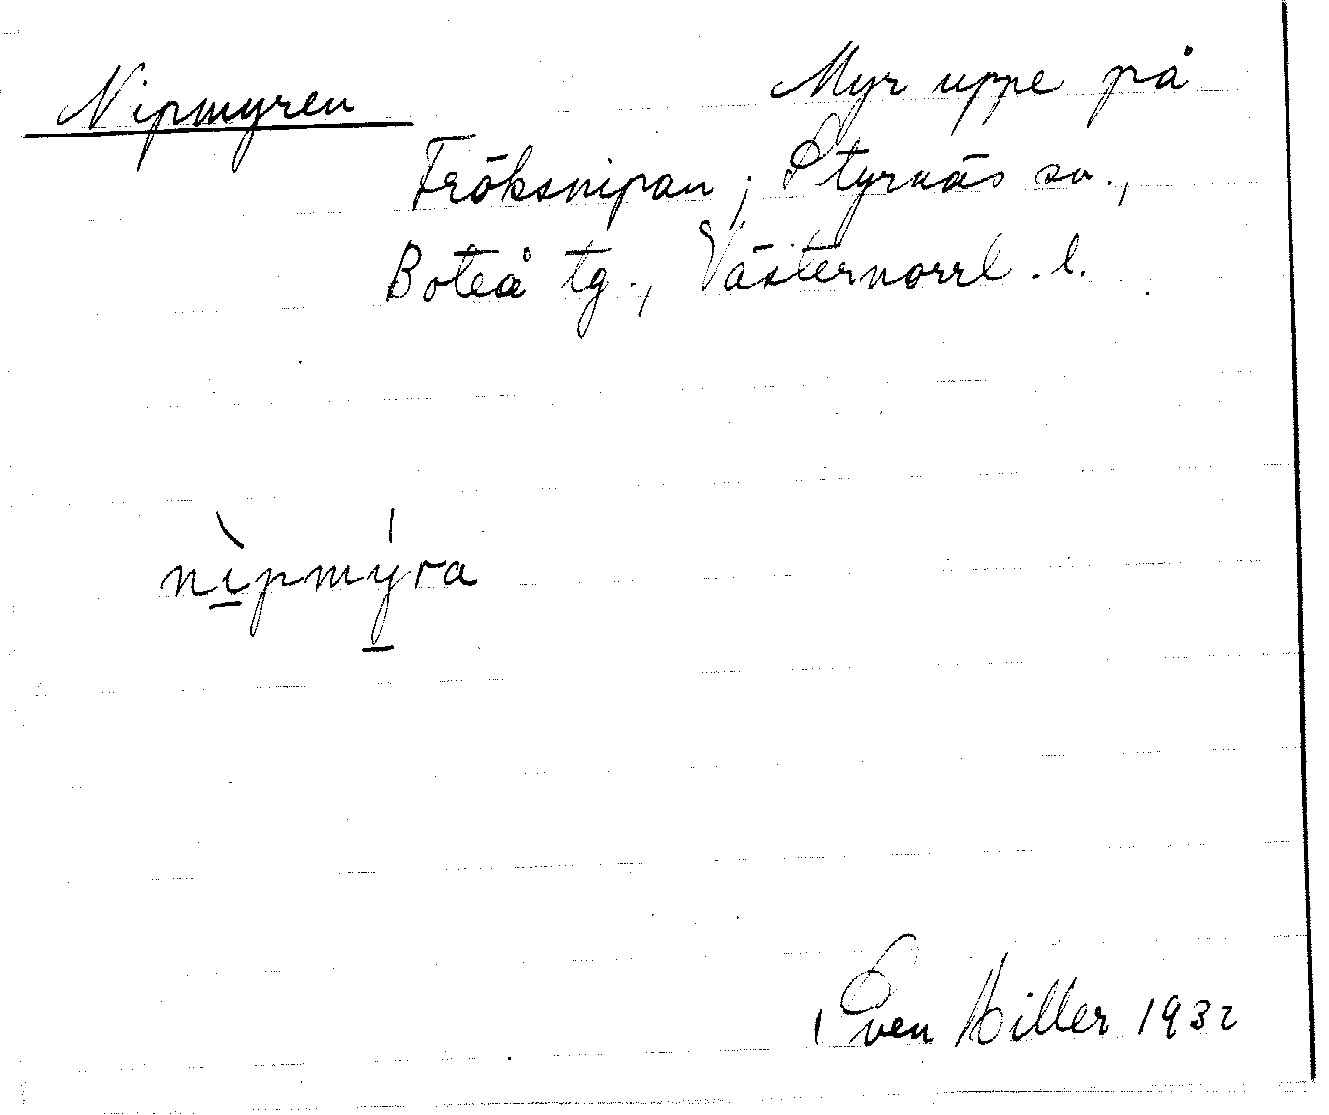 Nipmyren
Myr uppe på
Fröksnipan; Styrnäs sn.,
Boteå tg., Västernorrl. l.
nìpmýra
Sven Hiller 1932